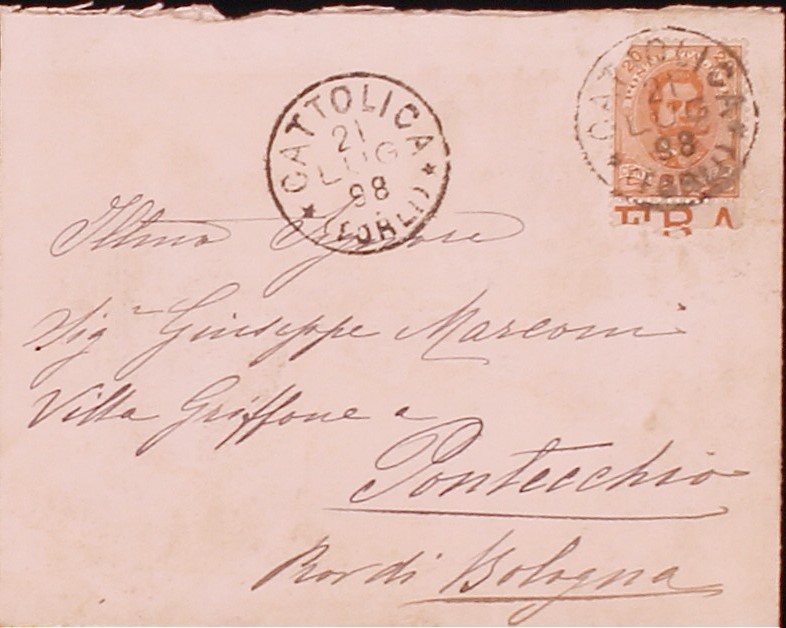 CATTOLICA
21
LUG
98
(FORLI)
CATTOLICA
21
LUG
98
(FORLI)
20
Illmo Signore
Sigr Giuseppe Marconi
Villa Griffone a
Pontecchio
Bologna